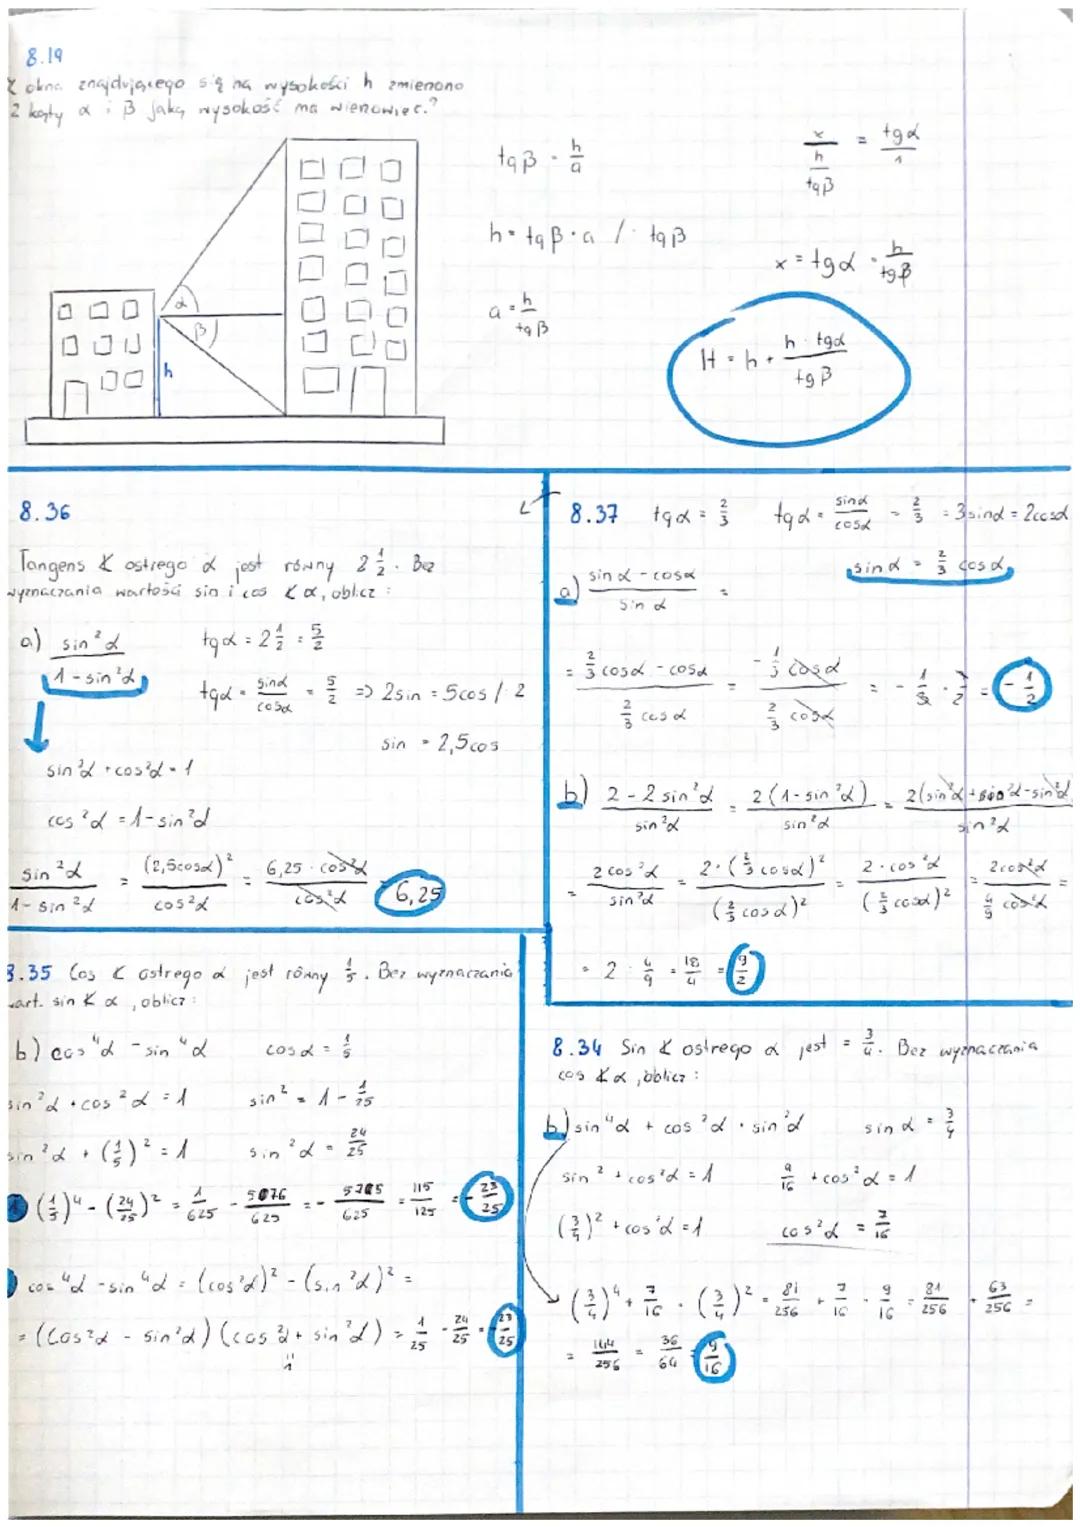 8.19
okna znajdującego się na wysokości h zmierzono
2 kąty α i β jaką wysokość ma wieżowiec?
α
β
h
tgβ = h/a
h = tgβ · a /: tgβ
a = h/tgβ
x/(h/tgβ) = tgα/1
x = tgα · h/tgβ
H = h + h · tgα/tgβ
8.36
Tangens ∢ ostrego α jest równy 2 1/2. Bez
wyznaczania wartości sin i cos ∢ α, oblicz:
a) sin²α/(1-sin²α)
tgα = 2 1/2 = 5/2
tgα = sinα/cosα = 5/2 => 2sin = 5cos /: 2
sin = 2,5cos
sin²α + cos²α = 1
cos²α = 1-sin²α
sin²α/(1-sin²α) = (2,5cosα)²/cos²α = 6,25 · cos²α/cos²α = 6,25
8.37 tgα = 2/3 tgα = sinα/cosα = 2/3 = 3sinα = 2cosα
sinα = 2/3 cosα
a) (sinα - cosα)/sinα =
= (2/3 cosα - cosα)/(2/3 cosα) = (-1/3 cosα)/(2/3 cosα) = -1/3 · 3/2 = -1/2
b) (2-2sin²α)/sin²α = 2(1-sin²α)/sin²α =
= 2cos²α/sin²α = 2·(2/3 cosα)²/(2/3 cosα)² = 2·cos²α/(2/3 cosα)² = 2cos²α/(4/9 cos²α) =
= 2 : 4/9 = 18/4 = 9/2
8.35 Cos ∢ ostrego α jest równy 1/5. Bez wyznaczania
wart. sin ∢ α, oblicz:
b) cos⁴α - sin⁴α cosα = 1/5
sin²α + cos²α = 1 sin² = 1 - 1/25
sin²α + (1/5)² = 1 sin²α = 24/25
(1/5)⁴ - (24/25)² = 1/625 - = - = 115/125 = -23/25
cos⁴α - sin⁴α = (cos²α)² - (sin²α)² =
= (cos²α - sin²α)(cos²α + sin²α) = 1/25 - 24/25 = -23/25
8.34 Sin ∢ ostrego α jest = 3/4. Bez wyznaczania
cos ∢ α, oblicz:
b) sin⁴α + cos²α · sin²α sinα = 3/4
sin² + cos²α = 1 9/16 + cos²α = 1
(3/4)² + cos²α = 1 cos²α = 7/16
(3/4)⁴ + 7/16 · (3/4)² = 81/256 + 7/16 · 9/16 = 81/256 + 63/256 =
= 144/256 = 36/64 = 9/16